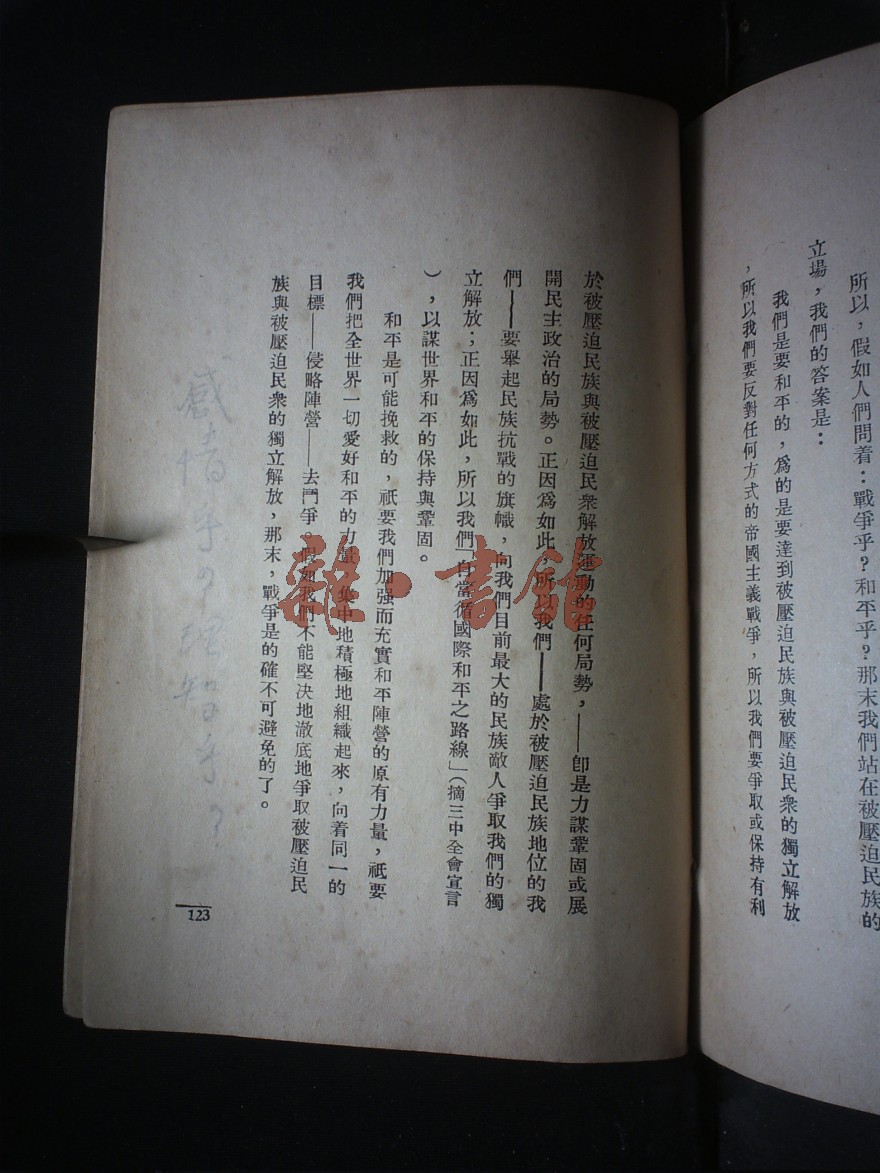 所以，假如人們問着：戰爭乎？和平乎？那末我們站在被壓迫民族的
立場，我們的答案是：
我們是要和平的，爲的是要達到被壓迫民族與被壓迫民衆的獨立解放
，所以我們要反對任何方式的帝國主義戰爭，所以我們要爭取或保持有利
於被壓迫民族與被壓迫民衆解放運動的任何局勢，——卽是力謀鞏固或展
開民主政治的局勢。正因爲如此，所以我們——處於被壓迫民族地位的我
們——要舉起民族抗戰的旗幟，向我們目前最大的民族敵人爭取我們的獨
立解放；正因爲如此，所以我們「自當循國際和平之路線」（摘三中全會宣言
），以謀世界和平的保持與鞏固。
和平是可能挽救的，祇要我們加强而充實和平陣營的原有力量，祇要
我們把全世界一切愛好和平的力量，集中地積極地組織起來，向着同一的
目標——侵略陣營——去鬥爭，假如我們不能堅决地澈底地爭取被壓迫民
族與被壓迫民衆的獨立解放，那末，戰爭是的確不可避免的了。
感情乎？理智乎？
123
雜·書館